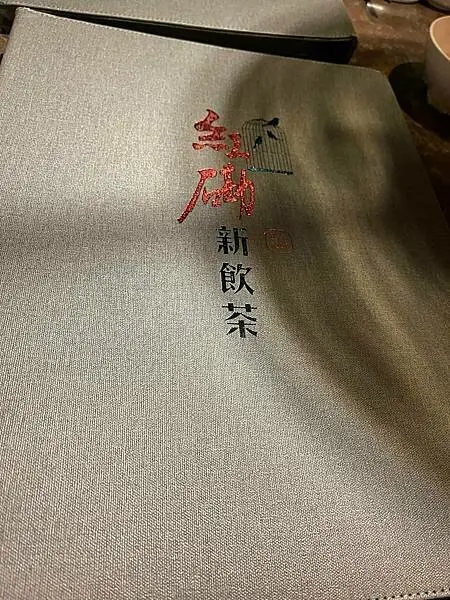 紅磡
新飲茶